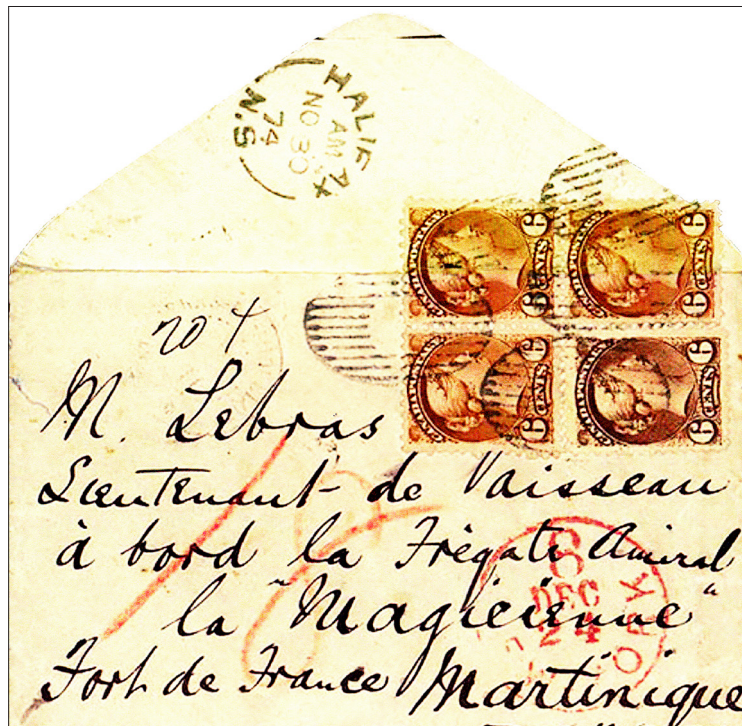 HALIFAX
AM
NO 30
74
N.S
6 CENTS 6
6 CENTS 6
6 CENTS 6
6 CENTS 6
20 +
M. Lebras
Lieutenant de Vaisseau
à bord la Frégate Amiral
la "Magicienne"
Fort de France Martinique
DEC
24
ORK